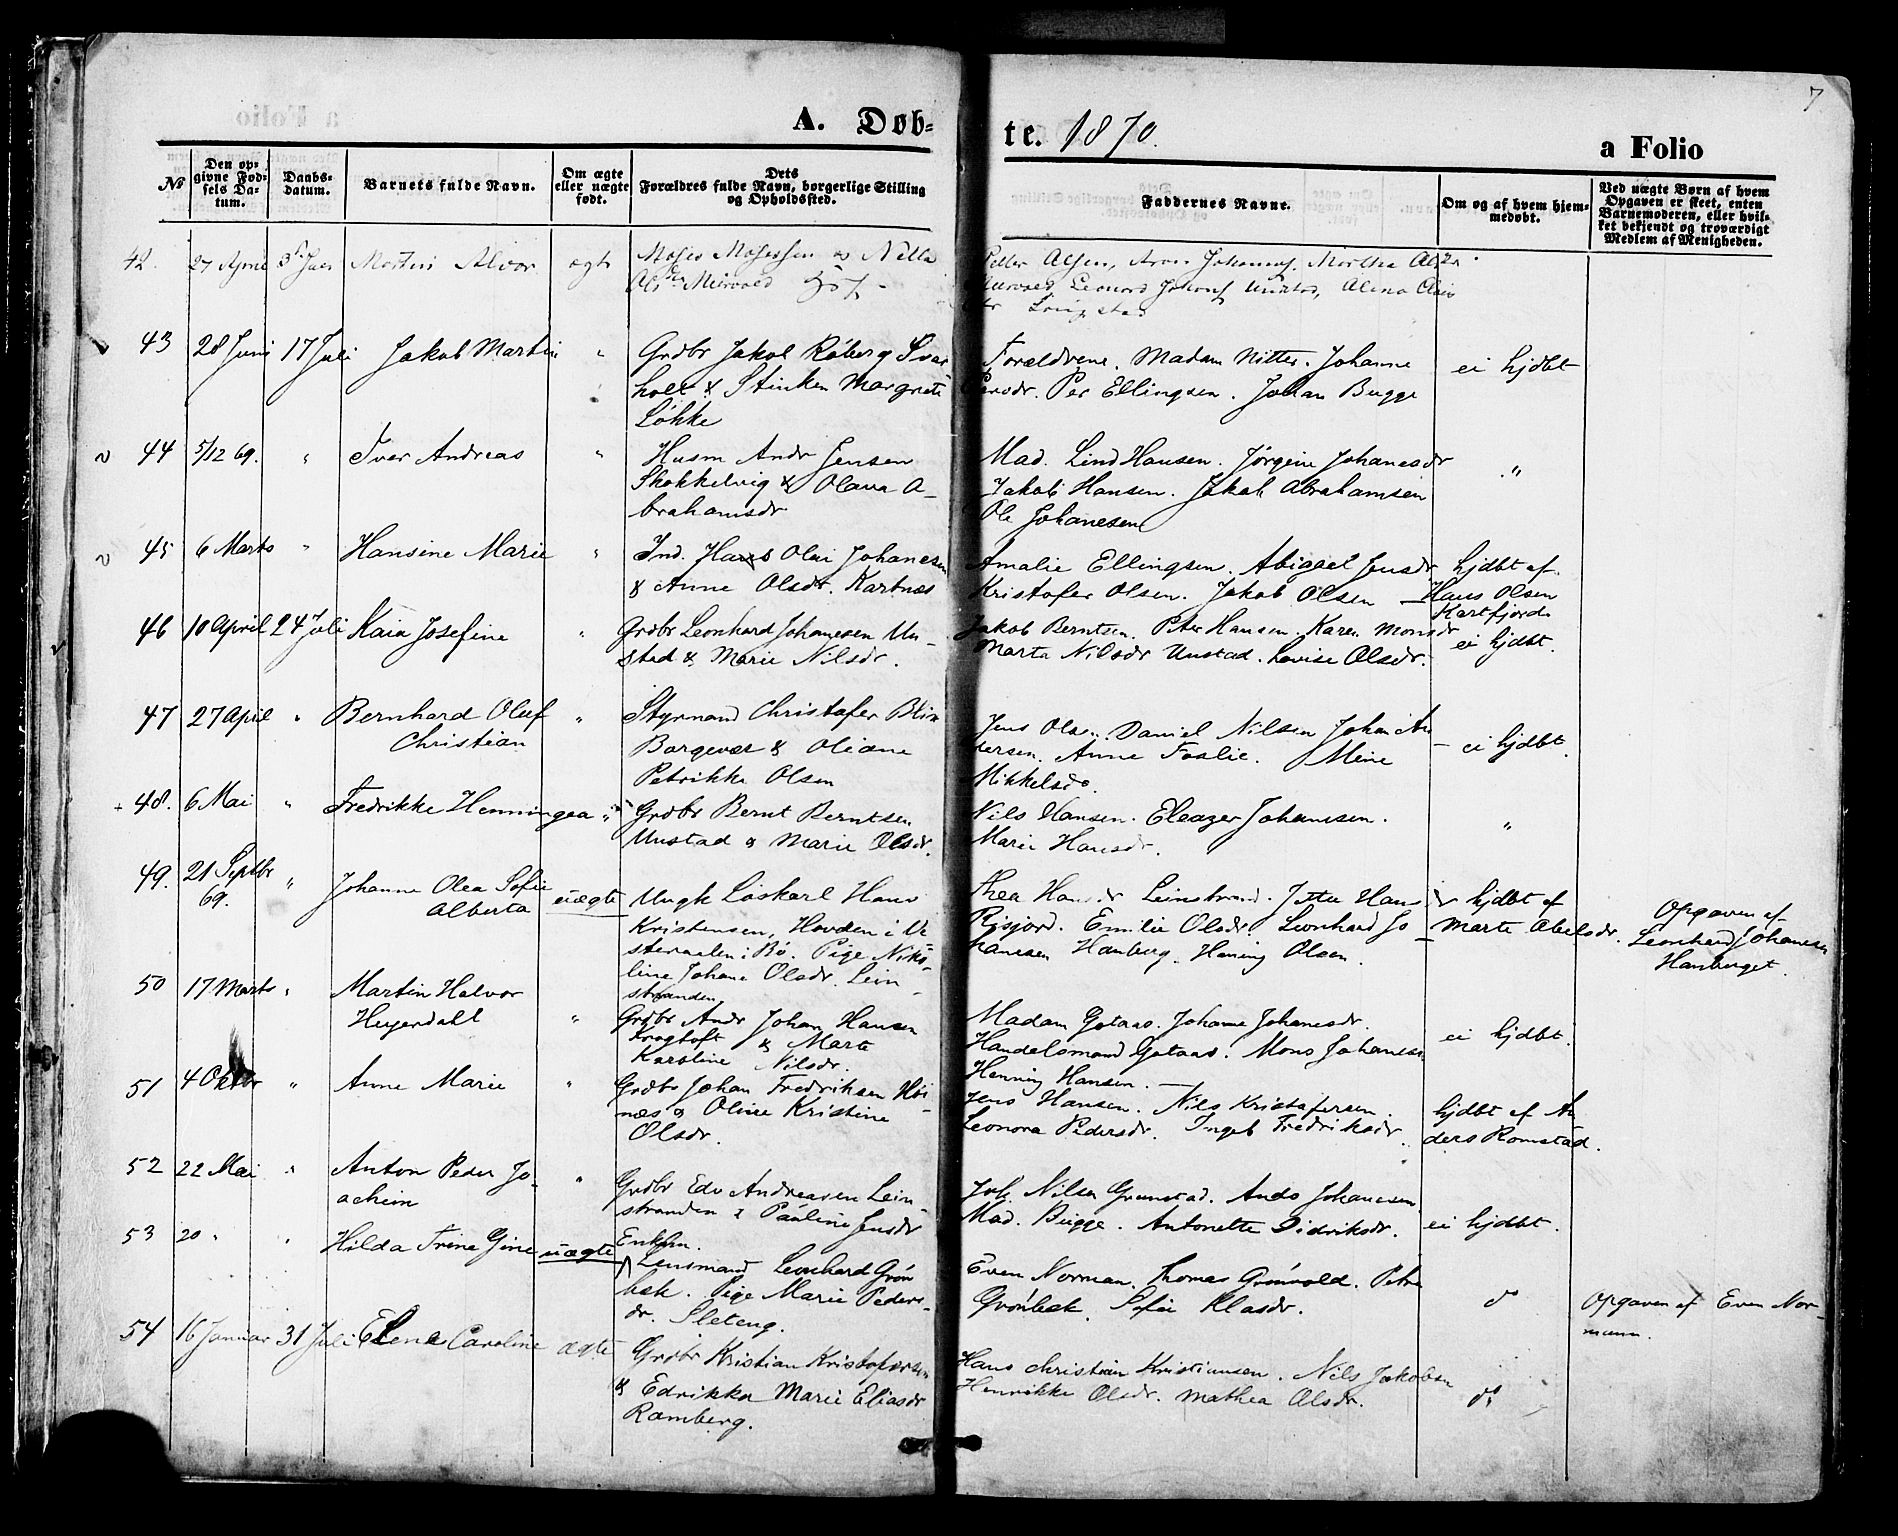 7
A. Døb-
te. 1870.
a Folio
No
Den op-
givne Fød-
sels Da-
tum.
Daabs-
datum.
Barnets fulde Navn.
Om ægte
eller uægte
født.
Dets
Forældres fulde Navn, borgerlige Stilling
og Opholdssted.
Faddernes Navne.
Om og af hvem hjem-
medøbt.
Ved uægte Børn af hvem
Opgaven er skeet, enten
Barnemoderen, eller hvil-
ket bekjendt og troværdigt
Medlem af Menigheden.
42. 27 April
43 28 Juni 17 Juli Jakob Martin "
Grdbr Jakob Røberg Svar
holt & Stinken Margrete
Løkke
Forældrene. Madam Nitter. Johanne
Persdr. Per Ellingsen. Johan Bugge
ei hjdbt
44 5/12 69. " Iver Andreas "
Husm Andr Jensen
Skokkelvig & Olava A-
brahamsdr
Mad. Lind Hansen. Jørgine Johanesdr
Jakob Hansen. Jakob Abrahamsen
Ole Johanesen
"
45 6 Marts " Hansine Marie "
Ind. Hans Olai Johanesen
& Anne Olsdr. Kartnæs
Amalie Ellingsen. Abigael Jensdr
Kristofer Olsen. Jakob Olsen
hjdbt af
Hans Olsen
Kartfjordn
46 10 April 24 Juli Kaia Josefine "
Grdbr Leonhard Johanesen Un-
stad & Marie Nilsdr.
Jakob Berntsen. Peter Hansen. Karen Monsdr
Marta Nilsdr Unstad. Lovise Olsdr.
ei hjdbt.
47 27 April " Bernhard Oluf
Christian "
Styrmand Christofer Blix
Borgevær & Oliane
Petrikke Olsen
Jens Olsen. Daniel Nilsen Johan An
dersen. Anne Foslie. Mine
Mikkelsdr.
ei hjdbt.
48. 6 Mai " Fredrikke Henningea "
Grdbr Bernt Berntsen
Unstad & Marie Olsdr.
Nils Hansen. Eleazer Johanesen.
Marie Hansdr.
"
49. 21 Septbr
69. " Johanne Olea Sofie
Alberta uægte
Ungk Løskarl Hans
Kristensen, Hovden i Ve
steraalen i Bø. Pige Niko-
line Johane Olsdr. Lein-
stranden
Thea Hansdr Leinstrand. Jette Hansdr
Risjord. Emilie Olsdr. Leonhard Jo-
hanesen Hanberg. Hening Olsen.
hjdbt af
Marte Abelsdr.
Opgaven af
Leonhard Johanesen
Hanberget.
50 17 Marts " Martin Halvor
Heyerdahl "
Grdbr Andr Johan Hansen
Kragtoft & Marte
Karoline Nilsdr.
Madam Gotaas. Johane Johanesdr.
Handelsmand Gotaas. Mons Johanesen
Henning Hansen.
ei hjdbt.
51 4 Oktbr " Anne Marie "
Grdbr Johan Fredriksen Høi-
næs & Oline Kristine
Olsdr.
Jens Hansen. Nils Kristofersen.
Leonora Pedersdr. Ingeb Fredriksdr.
hjdbt af An
ders Romstad.
52 22 Mai " Anton Peder Jo-
achim "
Grdbr Edv Andreasen Lein-
stranden & Pauline Jensdr
Joh. Nilsen Grunstad. Ands Johanesen
Mad. Bugge. Antonette Didriksdr.
ei hjdbt.
53 20 " " Hilda Trine Gine uægte
Enkem.
Lensmand Leonhard Grøn
bek. Pige Marie Peders-
dr. Sleteng.
Even Norman. Thomas Grønvold. Petra
Grønbek. Sofie Klasdr.
do
Opgaven af Even Nor-
mann.
54 16 Januar 31 Juli Elene Caroline ægte
Grdbr Kristian Kristofersen
& Edrikka Marie Eliasdr
Ramberg.
Hans Christian Kristiansen. Nils Jakobsen
Henrikke Olsdr. Mathea Olsdr.
do